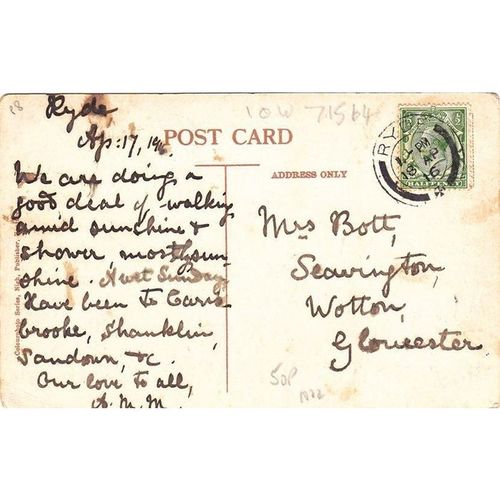 28
Ryde
Ap: 17, 1916
IOW 71564
POST CARD
ADDRESS ONLY
RYDE
PM
18 AP
16
HALFPENNY
We are doing a
good deal of walking
amid sunshine &
shower mostly sun-
shine. A wet Sunday
Have been to Caris
brooke, Shanklin,
Sandown, &c.
Our love to all,
A. M. M.
Mrs Bott,
Seavington,
Wotton,
Gloucester
50P